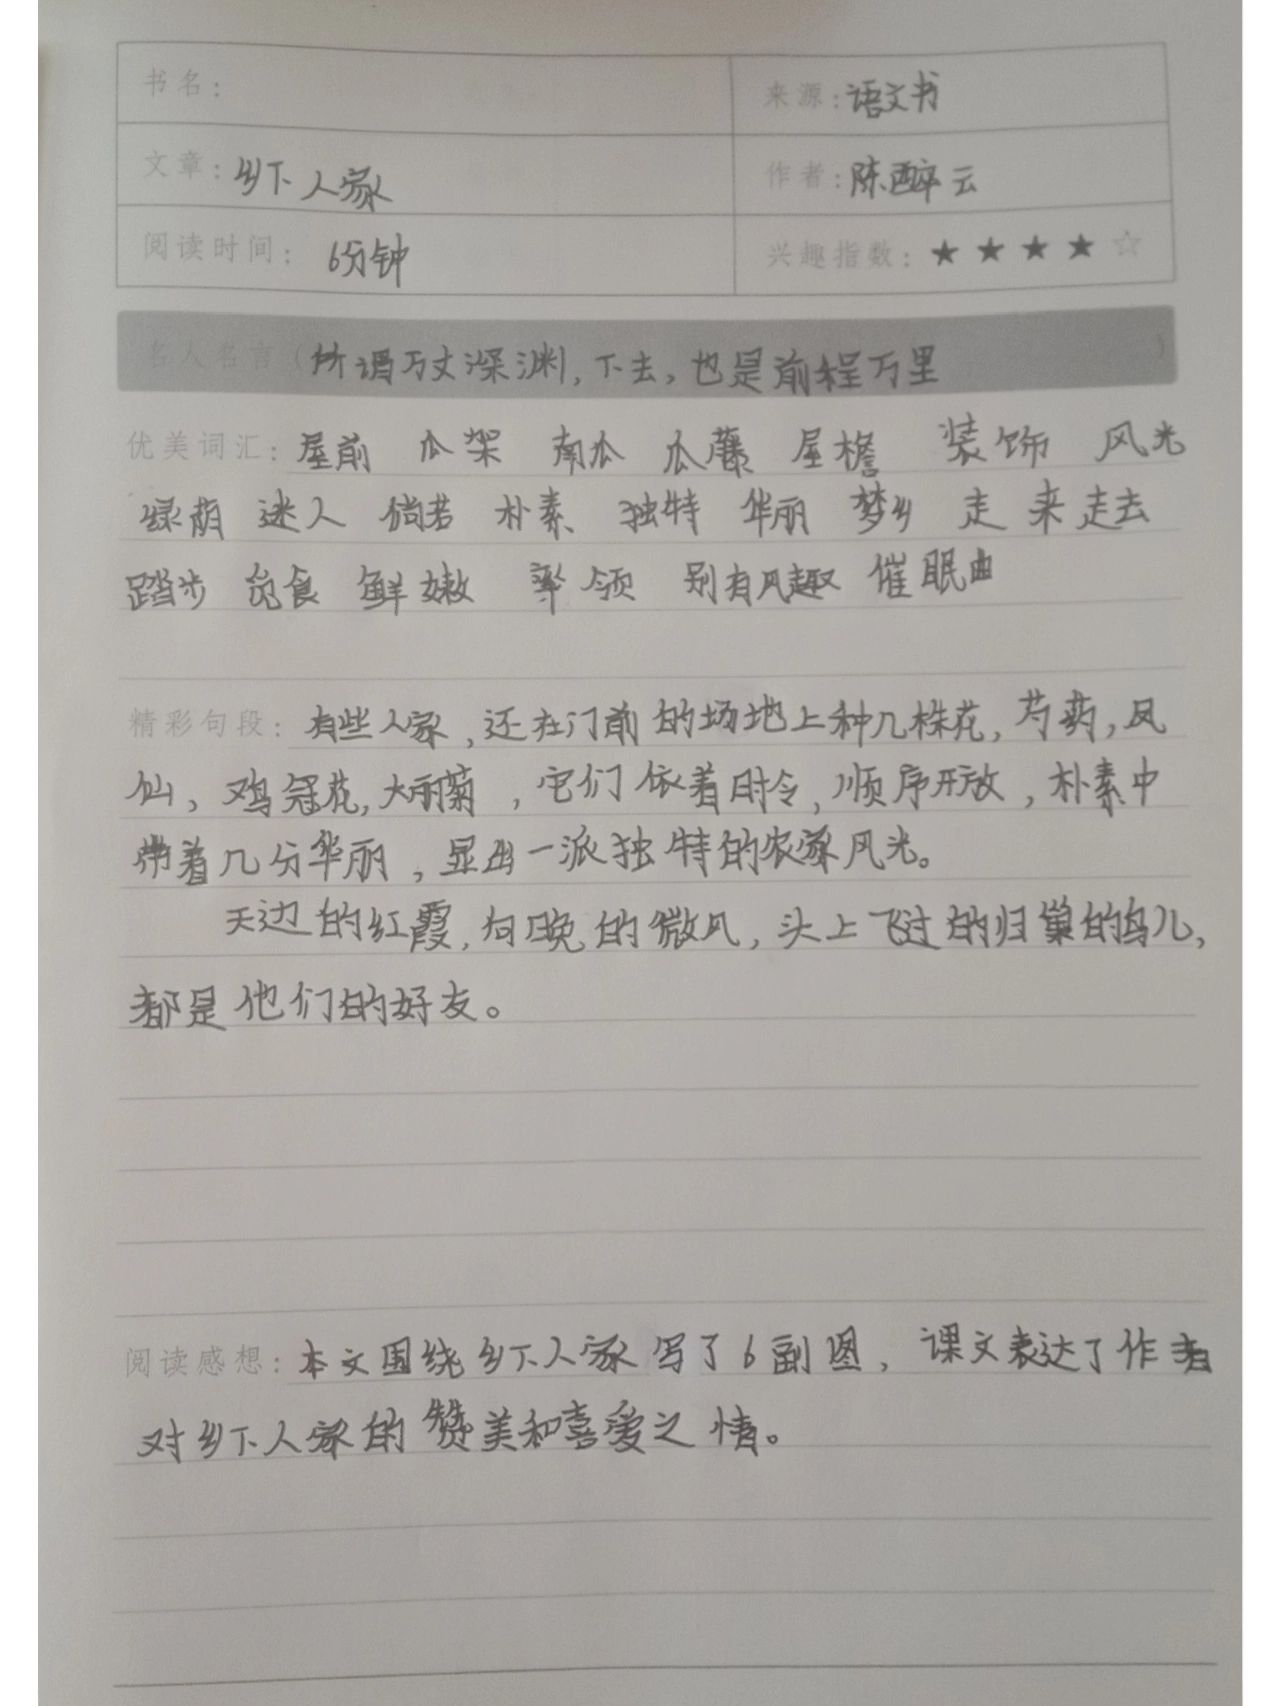 书名：
来源：语文书
文章：乡下人家
作者：陈醉云
阅读时间：6分钟
兴趣指数：★★★★☆
名人名言（所谓万丈深渊，下去，也是前程万里）
优美词汇：屋前 瓜架 南瓜 瓜藤 屋檐 装饰 风光
绿荫 迷人 倘若 朴素 独特 华丽 梦乡 走来走去
踏步 觅食 鲜嫩 率领 别有风趣 催眠曲
精彩句段：有些人家，还在门前的场地上种几株花，芍药，凤
仙、鸡冠花，大丽菊，它们依着时令，顺序开放，朴素中
带着几分华丽，显出一派独特的农家风光。
天边的红霞，向晚的微风，头上飞过的归巢的鸟儿，
都是他们的好友。
阅读感想：本文围绕乡下人家写了6副图，课文表达了作者
对乡下人家的赞美和喜爱之情。